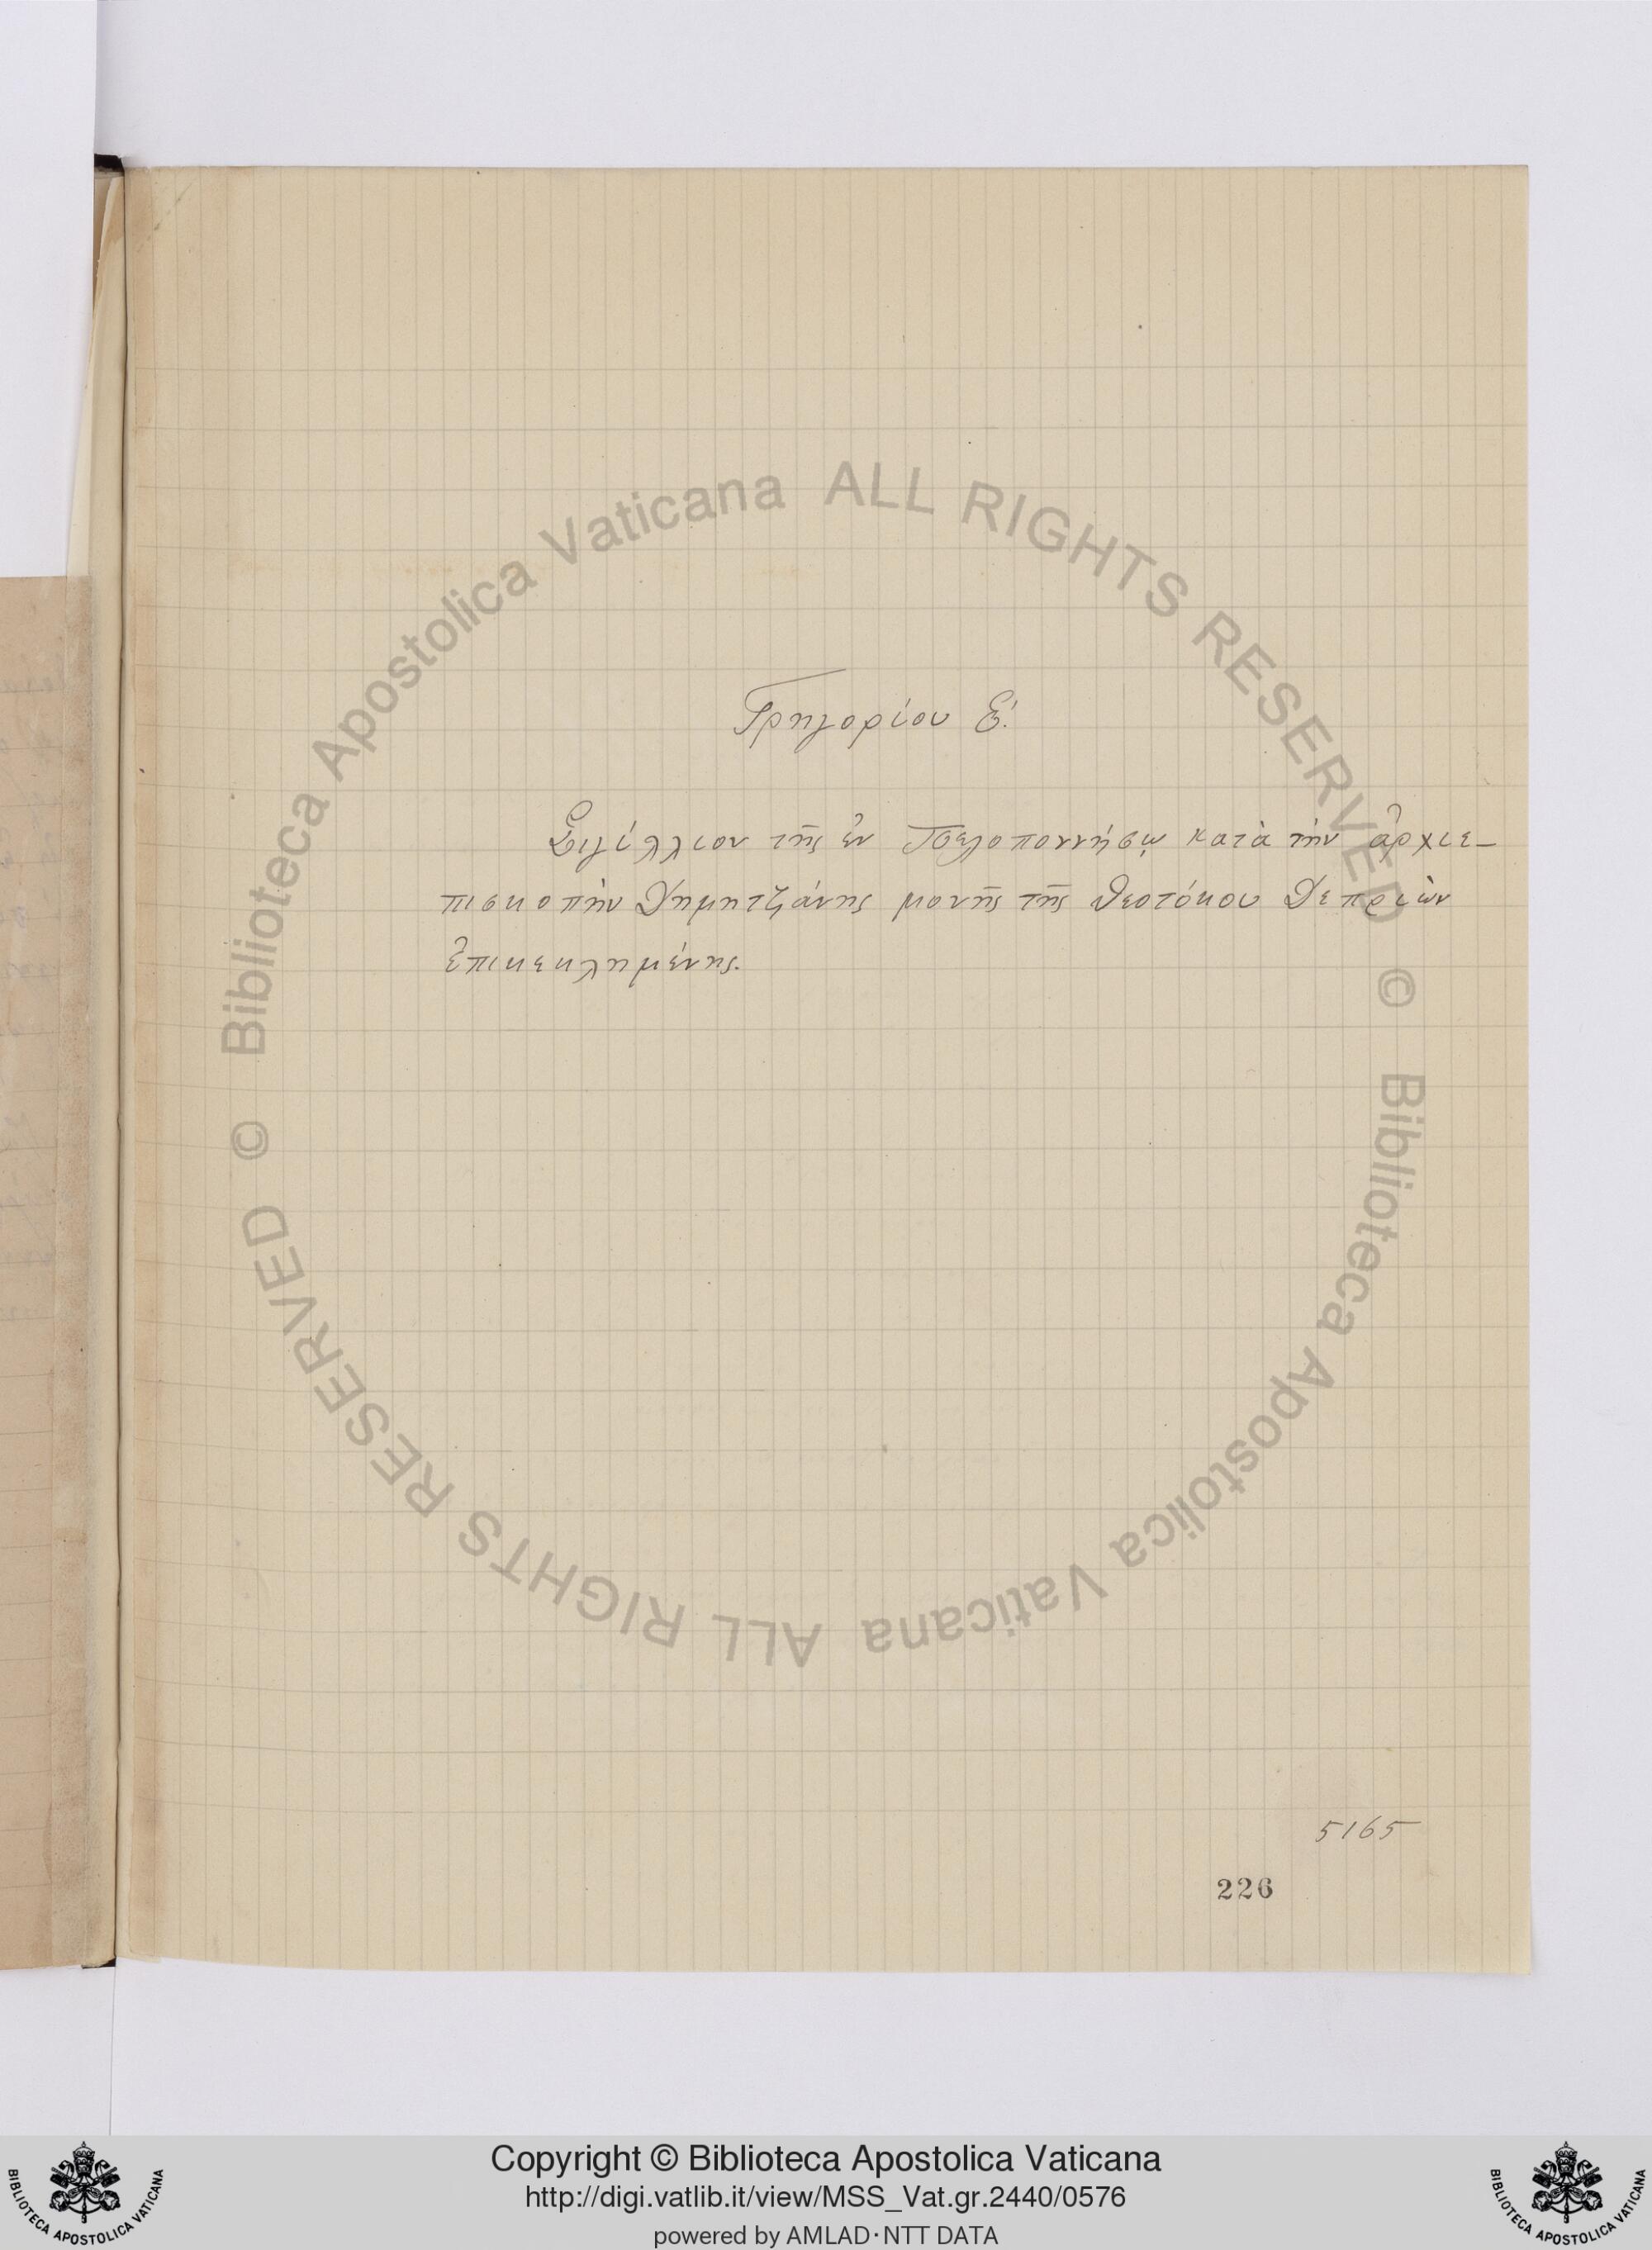 Γρηγορίου Ε΄.
Σιγίλλιον τῆς ἐν Πελοποννήσῳ κατὰ τὴν ἀρχιε-
πισκοπὴν Δημητζάνης μονῆς τῆς Θεοτόκου Δεπριὼν
ἐπικεκλημένης.
5165
226
© Biblioteca Apostolica Vaticana ALL RIGHTS RESERVED
© Biblioteca Apostolica Vaticana ALL RIGHTS RESERVED
Copyright © Biblioteca Apostolica Vaticana
http://digi.vatlib.it/view/MSS_Vat.gr.2440/0576
powered by AMLAD·NTT DATA
BIBLIOTECA APOSTOLICA VATICANA
BIBLIOTECA APOSTOLICA VATICANA